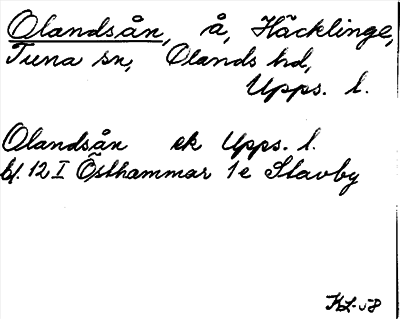 Olandsån, å, Häcklinge,
Tuna sn, Olands hd,
Upps. l.
Olandsån ek Upps. l.
bl. 12 I Östhammar 1e Stavby
KL-58